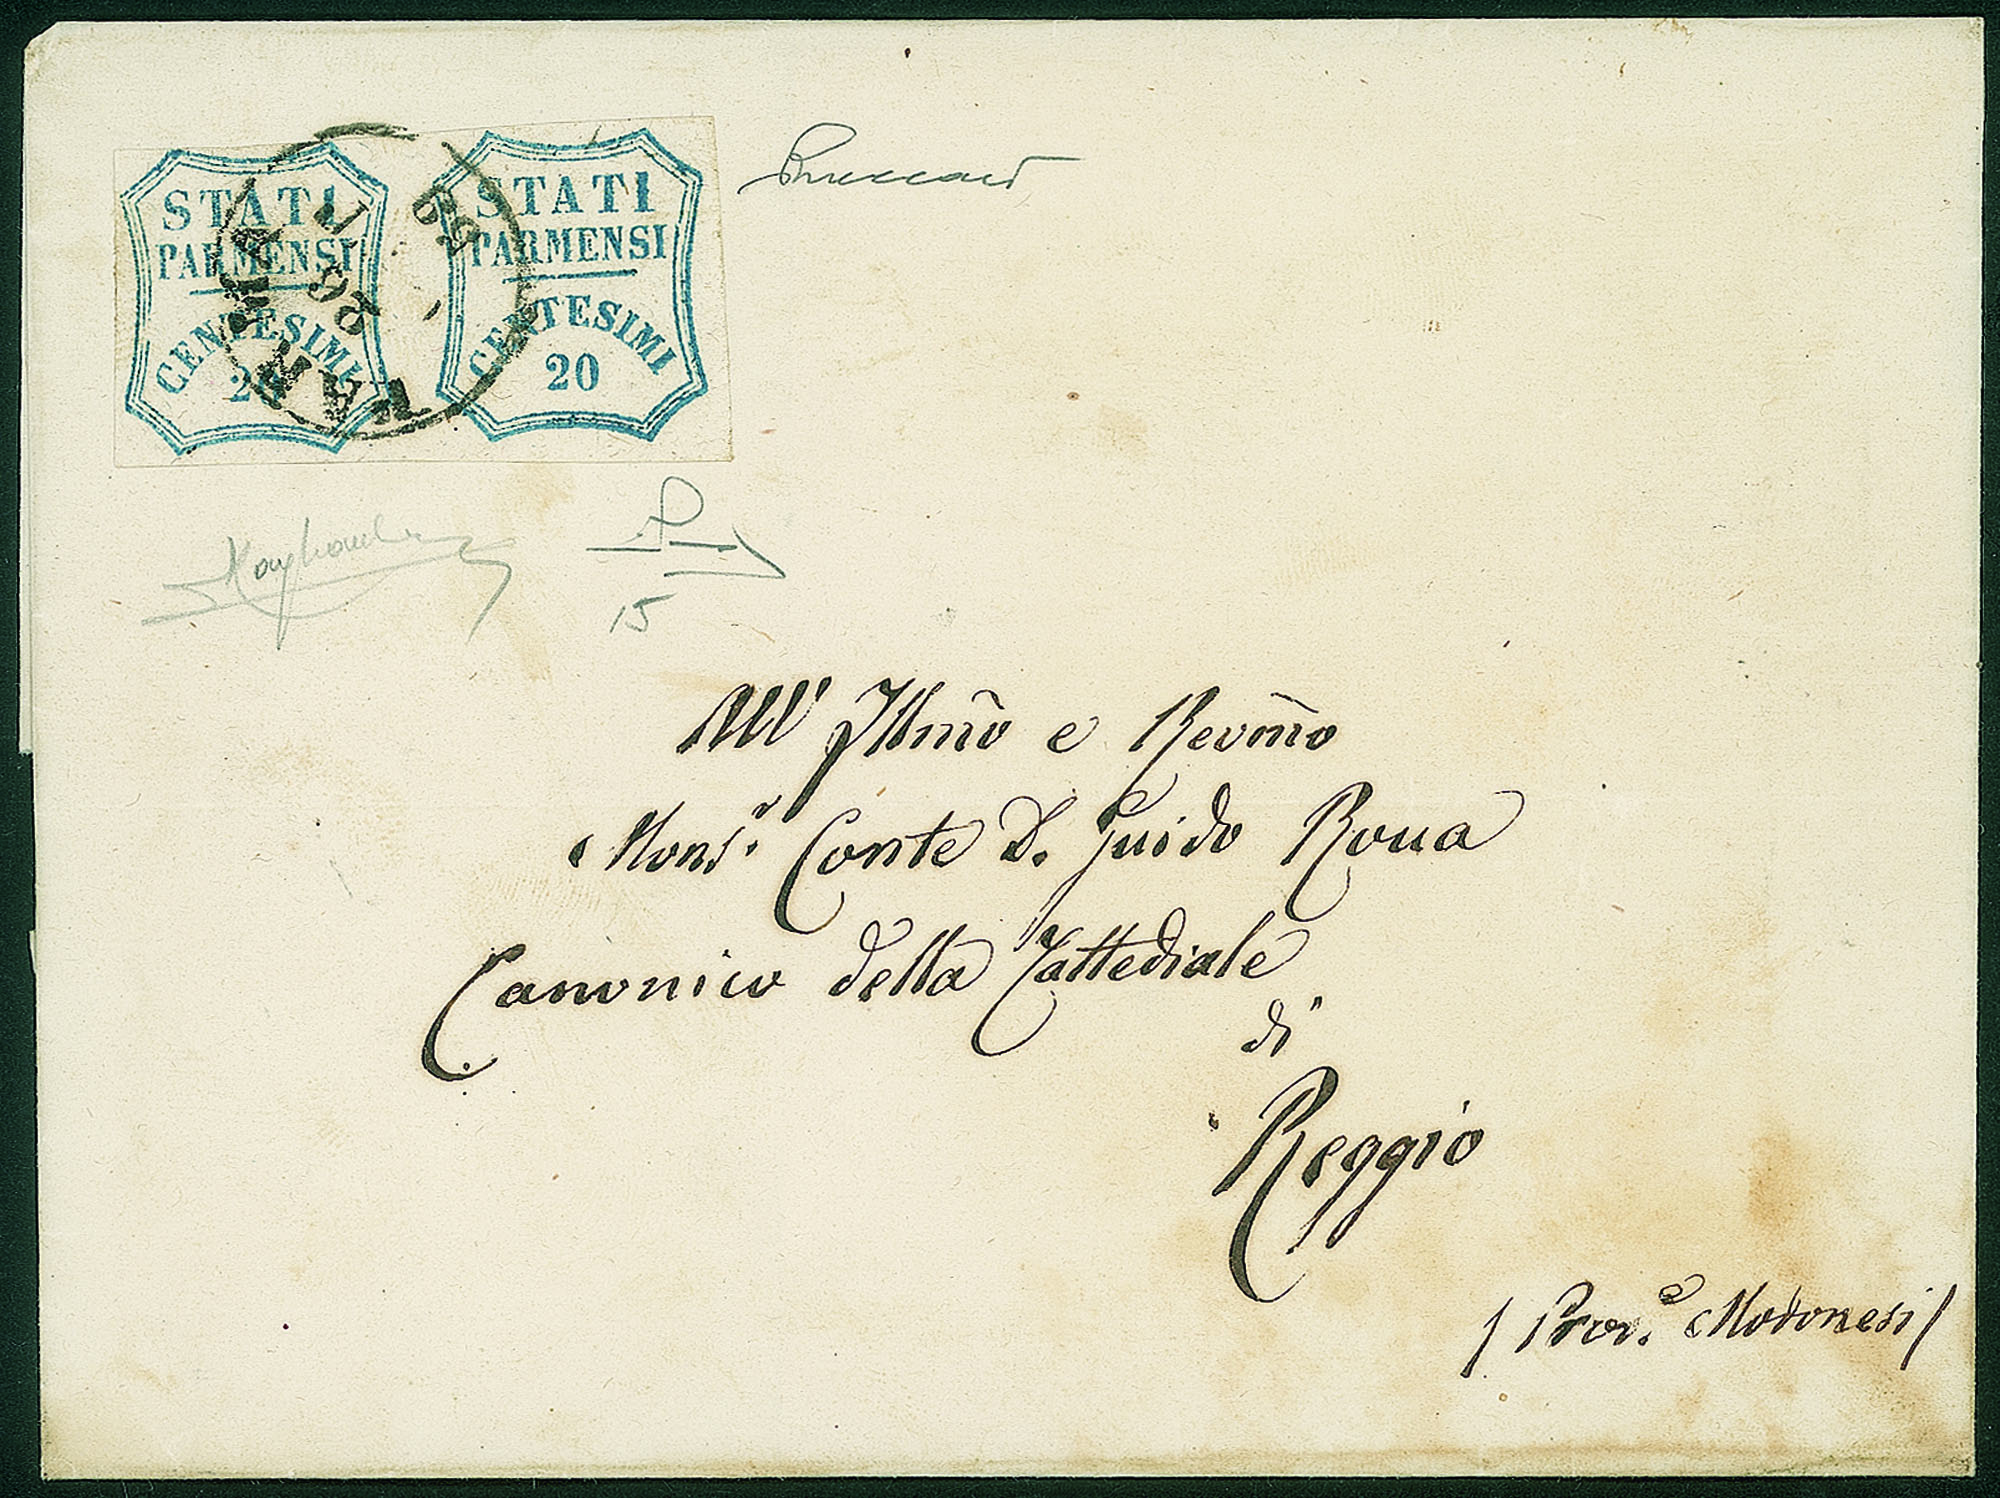 STATI
PARMENSI
CENTESIMI
20
STATI
PARMENSI
CENTESIMI
20
PARMA
26
59
15
All' Illmo e Revmo
Monsr. Conte D. Guido Roua
Canonico della Cattedrale
di
Reggio
/ Prove. Modonesi /